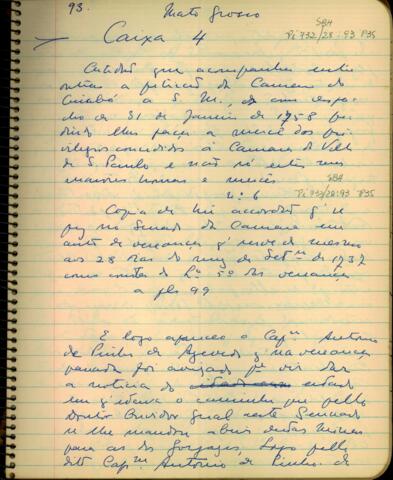 93.
Mato Grosso
SBH
Pi 732/28:93 P35
Caixa 4
Certidão que acompanha entre
outras a petição da Camara do
Cuiabá a S. M., com despa
cho de 31 de Janeiro de 1758 pe
dindo lhes faça a mercê dos pri
vilegios concedidos á Camara da Vila
de S. Paulo e não só estes mas
maiores honras e mercês
SBH
Pi 732/28:93 P35
n.º 6
Copia de hũ accordão q' se
fez no Senado da Camara em
auto de vereança q' serve do mesmo
aos 28 dias do mez de Set.ro de 1737
como consta do L.o 5º das vereanças
a fls 99
E logo apareceo o Cap.m Antonio
de Pinho de Azevedo q' na vereança
passada foi avizado p.a vir dar
a noticia do estado
em q' estava o caminho que pello
Doutor Ouvidor Geral neste Senado
se lhe mandou abrir destas Minas
para as dos Goyazes, Logo pello
dito Cap.m Antonio de Pinho de